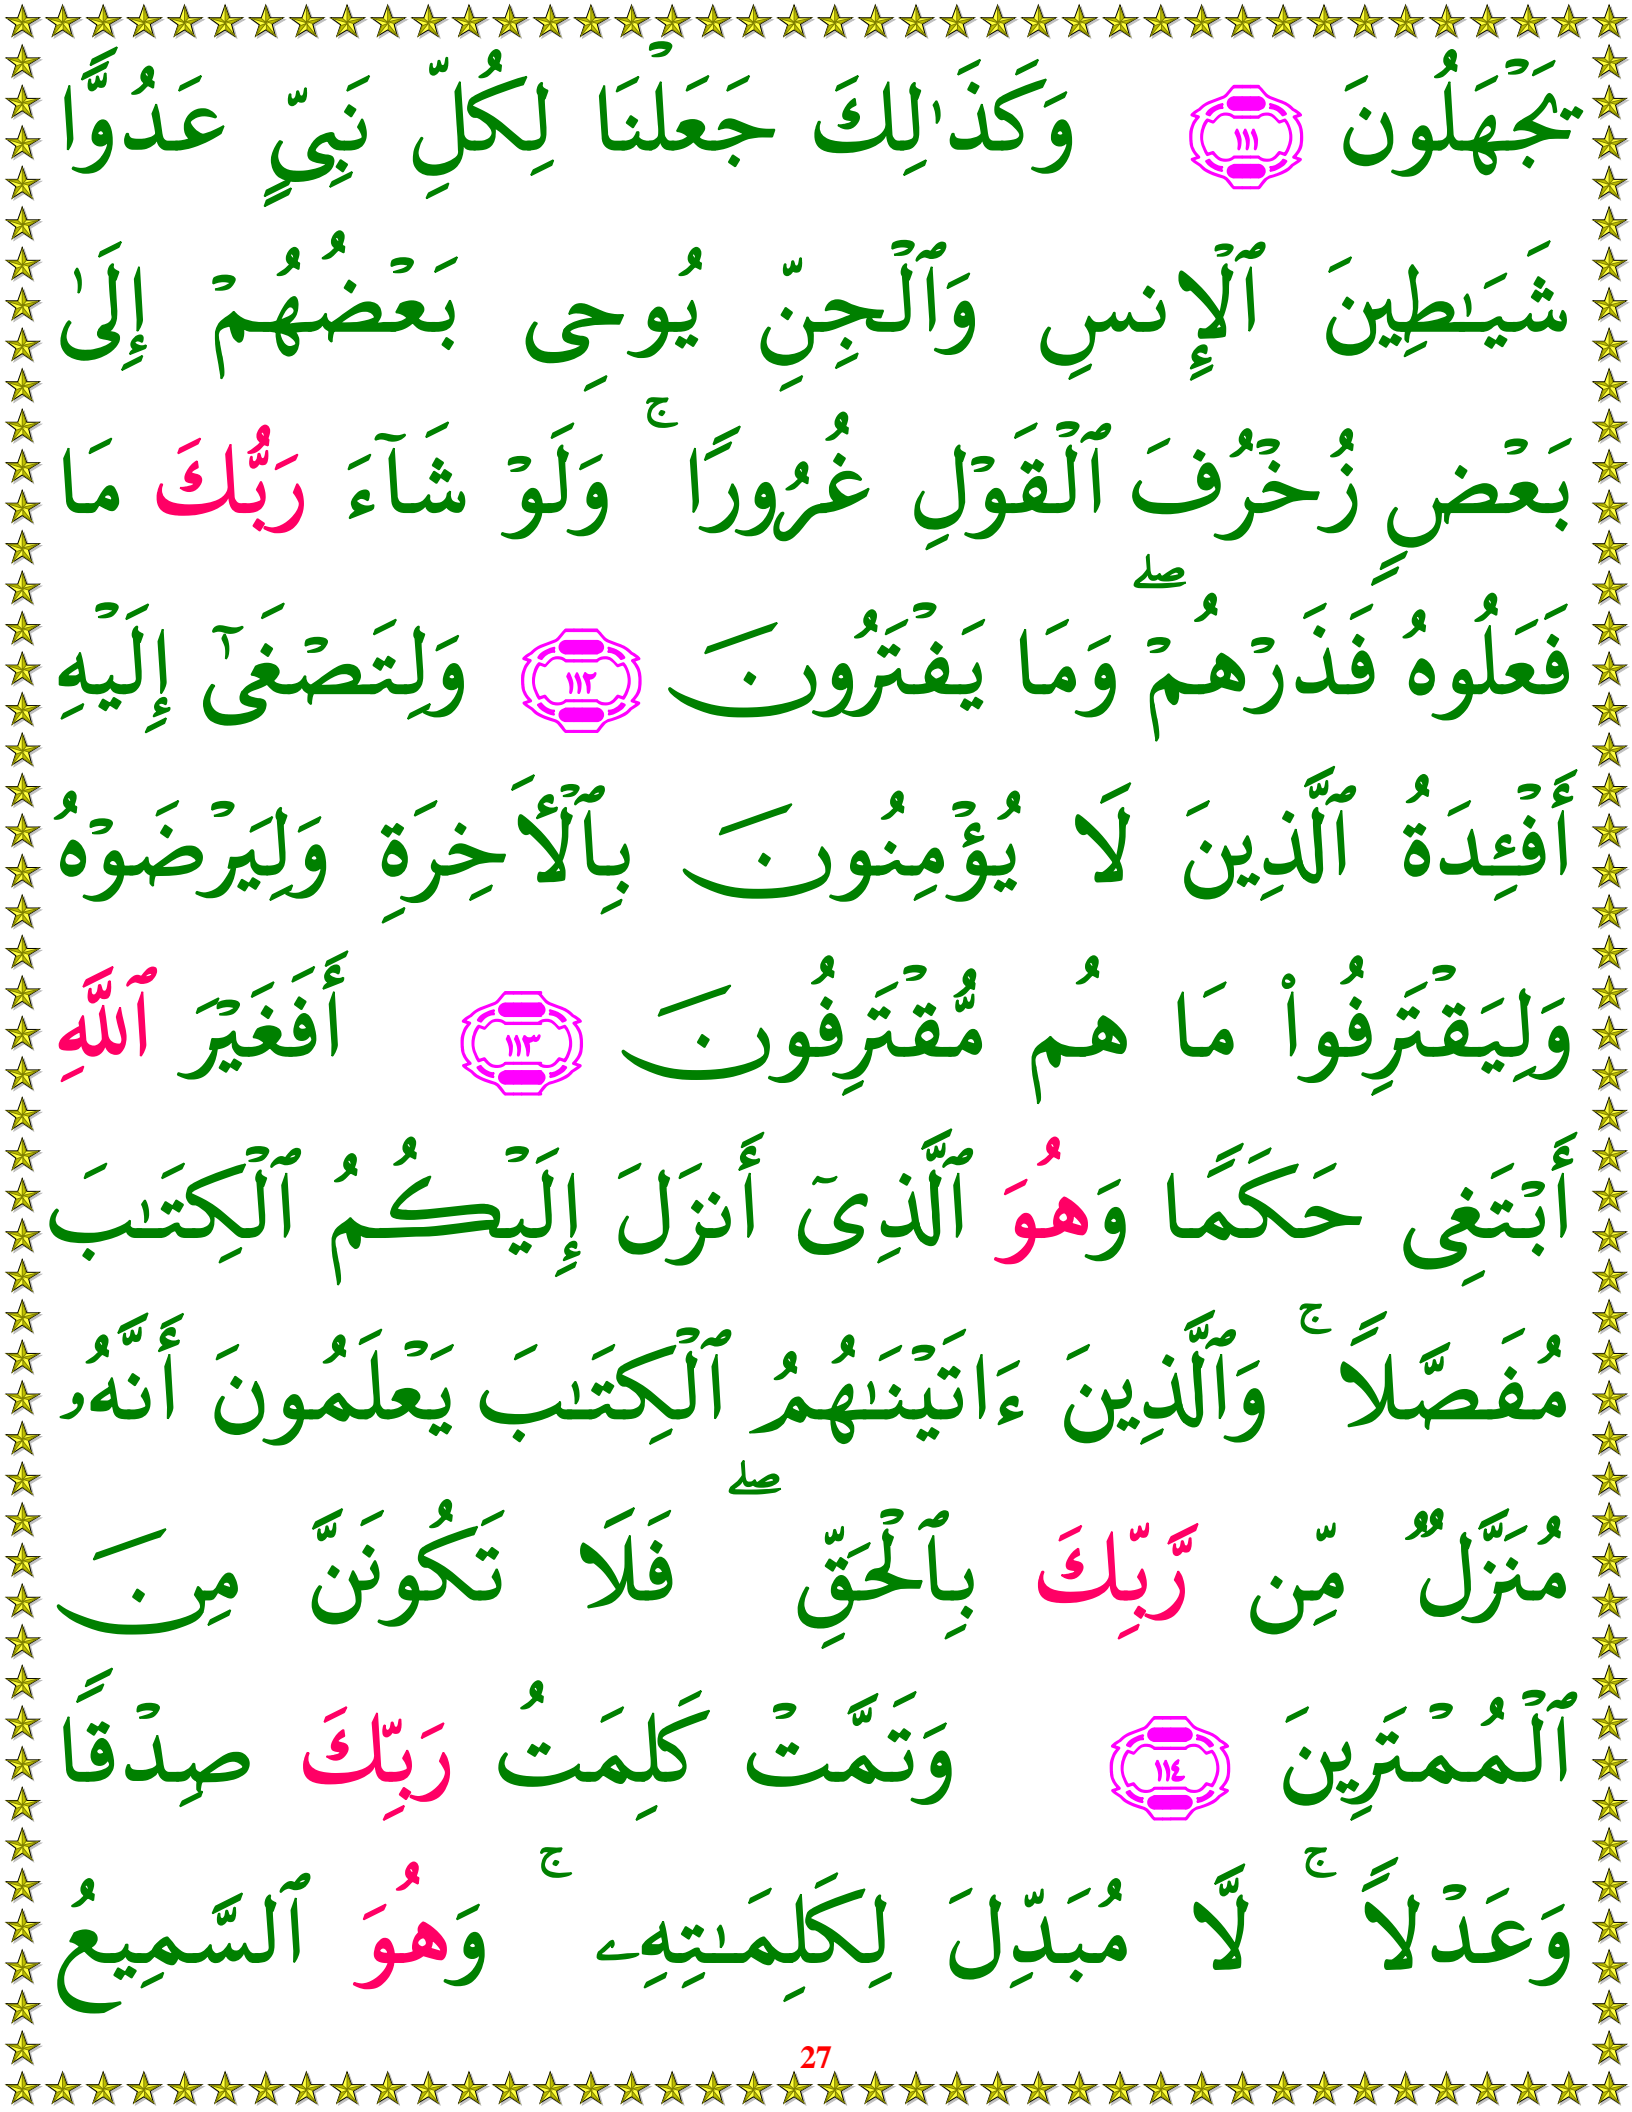 تَجْهَلُونَ ١١١ وَكَذَٰلِكَ جَعَلْنَا لِكُلِّ نَبِىٍّ عَدُوًّا
شَيَـٰطِينَ ٱلْإِنسِ وَٱلْجِنِّ يُوحِى بَعْضُهُمْ إِلَىٰ
بَعْضٍ زُخْرُفَ ٱلْقَوْلِ غُرُورًا ۚ وَلَوْ شَآءَ رَبُّكَ مَا
فَعَلُوهُ فَذَرْهُمْ ۖ وَمَا يَفْتَرُونَ ١١٢ وَلِتَصْغَىٰٓ إِلَيْهِ
أَفْـِٔدَةُ ٱلَّذِينَ لَا يُؤْمِنُونَ بِٱلْـَٔاخِرَةِ وَلِيَرْضَوْهُ
وَلِيَقْتَرِفُوا۟ مَا هُم مُّقْتَرِفُونَ ١١٣ أَفَغَيْرَ ٱللَّهِ
أَبْتَغِى حَكَمًا وَهُوَ ٱلَّذِىٓ أَنزَلَ إِلَيْكُمُ ٱلْكِتَـٰبَ
مُفَصَّلًا ۚ وَٱلَّذِينَ ءَاتَيْنَـٰهُمُ ٱلْكِتَـٰبَ يَعْلَمُونَ أَنَّهُۥ
مُنَزَّلٌ مِّن رَّبِّكَ بِٱلْحَقِّ ۖ فَلَا تَكُونَنَّ مِنَ
ٱلْمُمْتَرِينَ ١١٤ وَتَمَّتْ كَلِمَتُ رَبِّكَ صِدْقًا
وَعَدْلًا ۚ لَّا مُبَدِّلَ لِكَلِمَـٰتِهِۦ ۚ وَهُوَ ٱلسَّمِيعُ
27